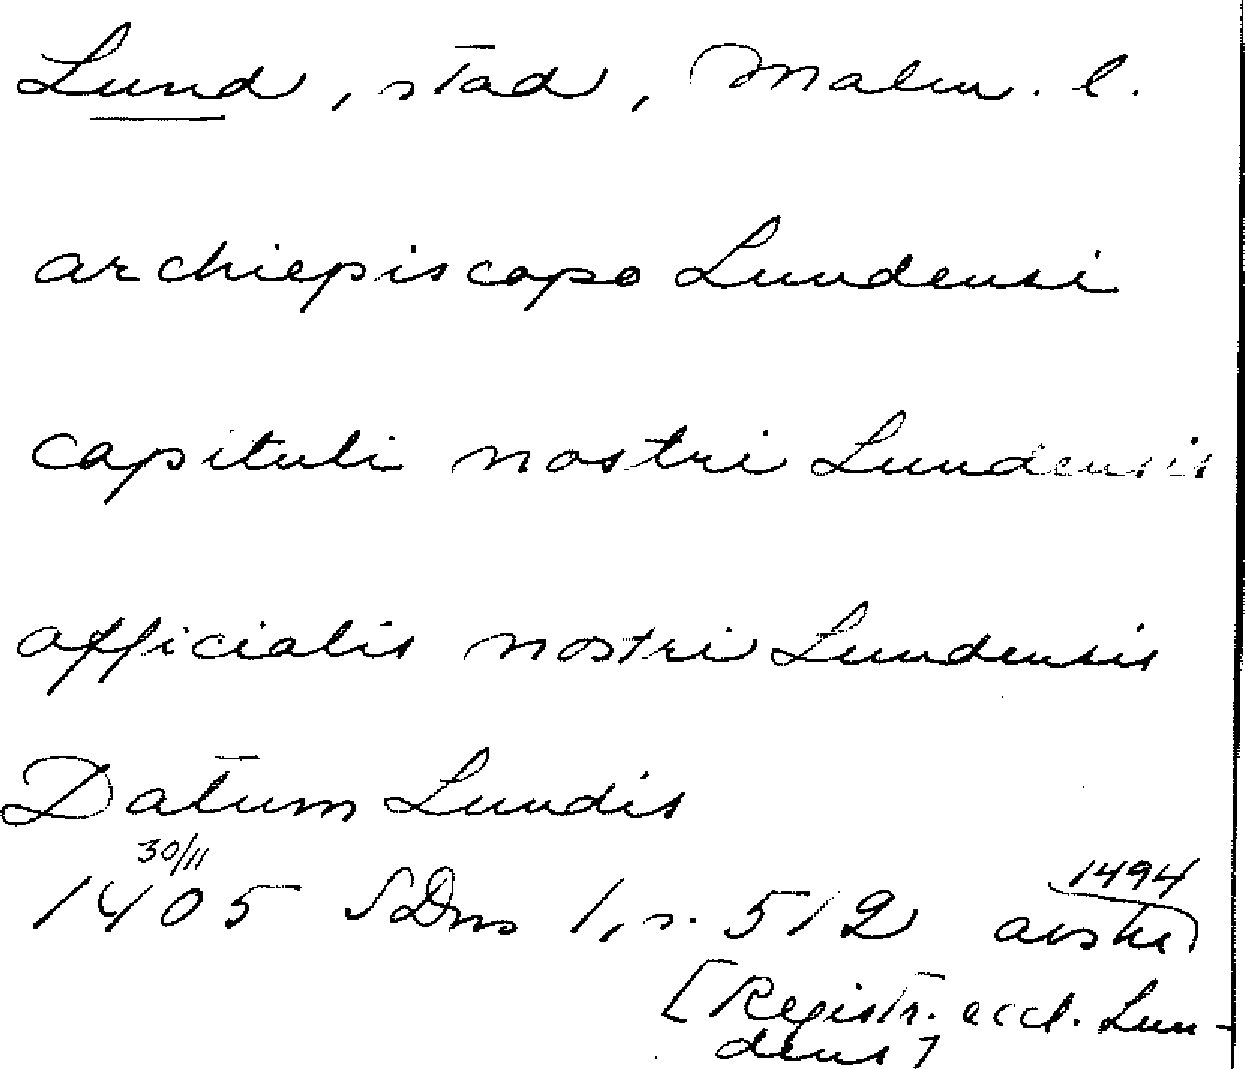 Lund, stad, Malm. l.
archiepiscopo Lundensi
capituli nostri Lundensis
officialis nostri Lundensis
Datum Lundis
30/11
1494
1405 SDns 1, s. 512 avskr.
[Registr. eccl. Lun-
dens]